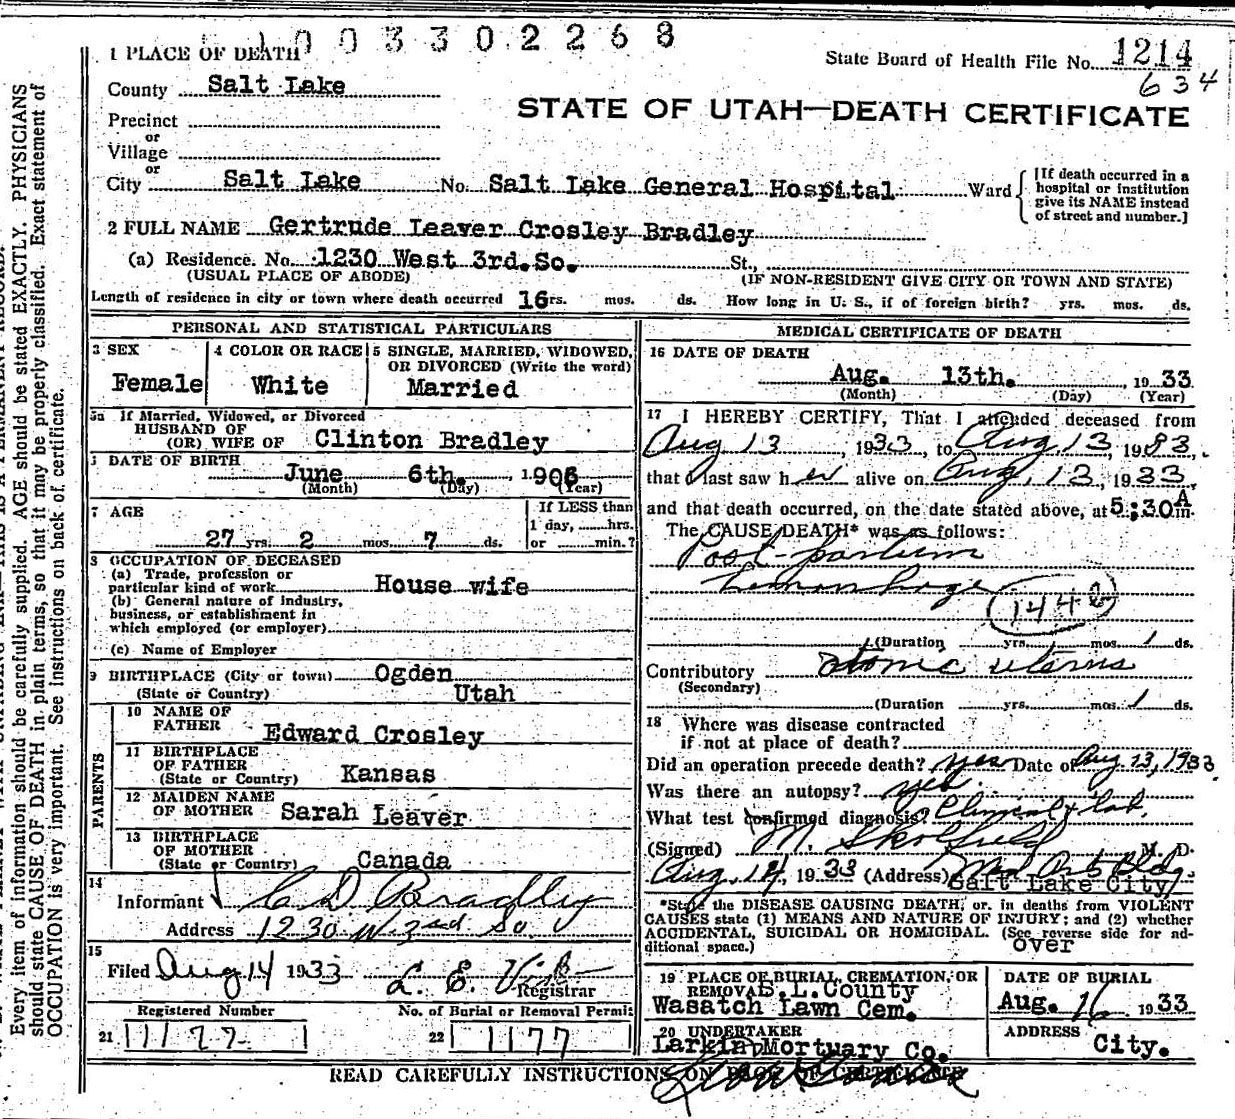 1003302268
1 PLACE OF DEATH
State Board of Health File No. 1214
634
County Salt Lake
STATE OF UTAH—DEATH CERTIFICATE
Precinct
or
Village
or
City Salt Lake No. Salt Lake General Hospital Ward
[If death occurred in a
hospital or institution
give its NAME instead
of street and number.]
2 FULL NAME Gertrude Leaver Crosley Bradley
(a) Residence. No. 1230 West 3rd. So. St.,
(USUAL PLACE OF ABODE) (IF NON-RESIDENT GIVE CITY OR TOWN AND STATE)
Length of residence in city or town where death occurred 16 rs. mos. ds. How long in U. S., if of foreign birth? yrs. mos. ds.
PERSONAL AND STATISTICAL PARTICULARS
3 SEX
Female
4 COLOR OR RACE
White
5 SINGLE, MARRIED, WIDOWED,
OR DIVORCED (Write the word)
Married
5a If Married, Widowed, or Divorced
HUSBAND OF
(OR) WIFE OF Clinton Bradley
DATE OF BIRTH
June 6th. 1906
(Month) (Day) (Year)
7 AGE
27 yrs. 2 mos. 7 ds.
If LESS than
1 day, hrs.
or min.?
8 OCCUPATION OF DECEASED
(a) Trade, profession or
particular kind of work House wife
(b) General nature of industry,
business, or establishment in
which employed (or employer)
(c) Name of Employer
9 BIRTHPLACE (City or town) Ogden
(State or Country) Utah
PARENTS
10 NAME OF
FATHER Edward Crosley
11 BIRTHPLACE
OF FATHER
(State or Country) Kansas
12 MAIDEN NAME
OF MOTHER Sarah Leaver
13 BIRTHPLACE
OF MOTHER
(State or Country) Canada
14
Informant C D Bradley
Address 1230 W. 3rd So.
15
Filed Aug 14 1933 L. E.
Registrar
Registered Number No. of Burial or Removal Permit
21 22 1177
MEDICAL CERTIFICATE OF DEATH
16 DATE OF DEATH
Aug. 13th. 1933
(Month) (Day) (Year)
17 I HEREBY CERTIFY, That I attended deceased from
Aug 13, 1933, to Aug. 13, 1933,
that I last saw her alive on Aug. 13, 1933,
and that death occurred, on the date stated above, at 5:30 A m.
The CAUSE DEATH* was as follows:
Post-partum
Hemorrhage
144b
(Duration yrs. mos. 1 ds.
Contributory atonic uterus
(Secondary)
(Duration yrs. mos. 1 ds.
18 Where was disease contracted
if not at place of death?
Did an operation precede death? yes Date of Aug 13, 1933
Was there an autopsy? yes.
What test confirmed diagnosis? Clinical & lab.
(Signed) M. Skolfield M. D.
Aug. 14, 1933 (Address) Med Arts Bldg.
Salt Lake City
*State the DISEASE CAUSING DEATH, or in deaths from VIOLENT
CAUSES state (1) MEANS AND NATURE OF INJURY; and (2) whether
ACCIDENTAL, SUICIDAL OR HOMICIDAL. (See reverse side for ad-
ditional space.) over
19 PLACE OF BURIAL, CREMATION, OR
REMOVAL S. L. County
Wasatch Lawn Cem.
DATE OF BURIAL
Aug. 16 1933
20 UNDERTAKER
Larkin Mortuary Co.
ADDRESS
City.
READ CAREFULLY INSTRUCTIONS ON BACK OF CERTIFICATE
Every item of information should be carefully supplied. AGE should be stated EXACTLY. PHYSICIANS
should state CAUSE OF DEATH in plain terms, so that it may be properly classified. Exact statement of
OCCUPATION is very important. See instructions on back of certificate.